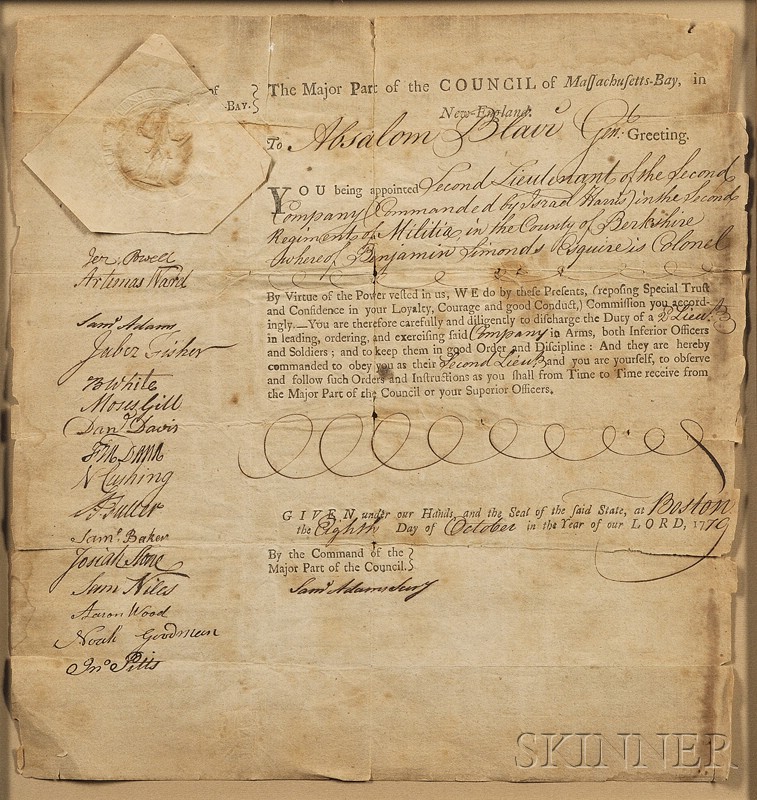 of
BAY. }
The Major Part of the COUNCIL of Massachusetts-Bay, in
New-England.
To Absalom Blair Gent. Greeting.
YOU being appointed Second Lieutenant of the Second
Company (Commanded by Israel Harris) in the Second
Regiment of Militia, in the County of Berkshire
whereof Benjamin Simonds Esquire is Colonel
By Virtue of the Power vested in us, WE do by these Presents, (reposing Special Trust
and Confidence in your Loyalty, Courage and good Conduct,) Commission you accord-
ingly.—You are therefore carefully and diligently to discharge the Duty of a 2d Lieut.
in leading, ordering, and exercising said Company in Arms, both Inferior Officers
and Soldiers; and to keep them in good Order and Discipline: And they are hereby
commanded to obey you as their Second Lieut. and you are yourself, to observe
and follow such Orders and Instructions as you shall from Time to Time receive from
the Major Part of the Council or your Superior Officers.
GIVEN under our Hands, and the Seal of the said State, at Boston
the Eighth Day of October in the Year of our LORD, 1779
By the Command of the }
Major Part of the Council. }
Saml Adams Secy
Jer. Powell
Artemas Ward
Saml Adams
Jabez Fisher
B White
Moses Gill
Danl Davis
Fra Dana
N Cushing
Fuller
Saml Baker
Josiah Stone
Sam Niles
Aaron Wood
Noah Goodman
Jno Pitts
SKINNER